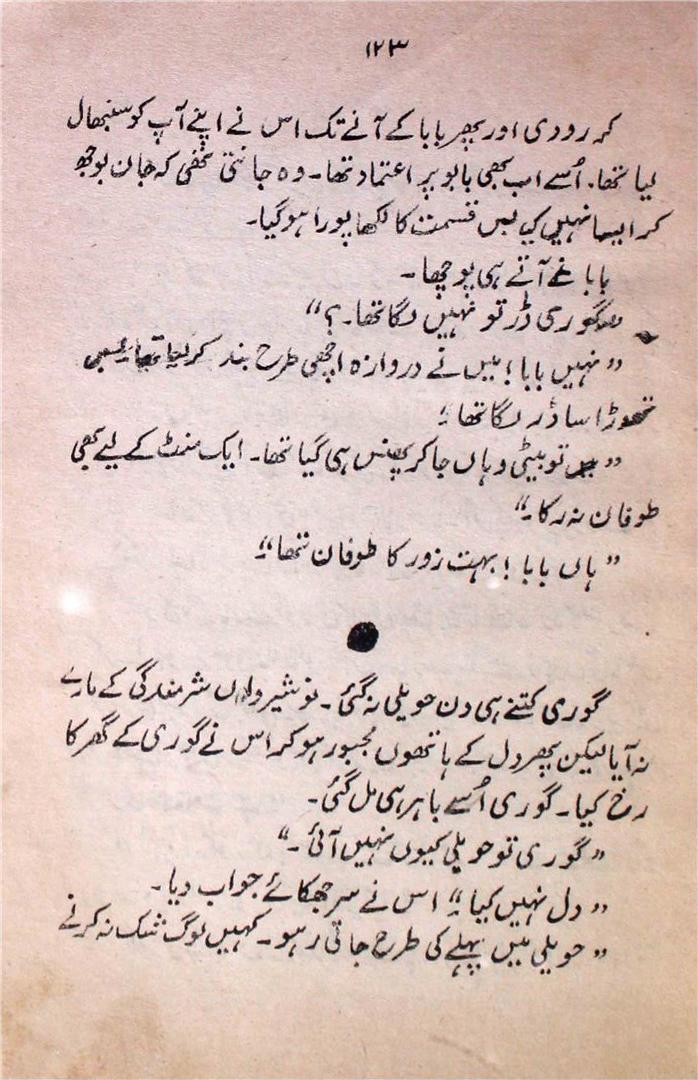 ۱۲۳
کہ رو دی اور پھر بابا کے آنے تک اس نے اپنے آپ کو سنبھال
لیا تھا۔ اُسے اب بھی بابو پر اعتماد تھا۔ وہ جانتی تھی کہ جان بوجھ
کر ایسا نہیں کیا بس قسمت کا لکھا پورا ہو گیا۔
بابا نے آتے ہی پوچھا۔
"گوری ڈر تو نہیں لگا تھا۔؟"
"نہیں بابا! میں نے دروازہ اچھی طرح بند کر لیا تھا۔ بس
تھوڑا سا ڈر لگا تھا۔"
"میں تو بیٹی وہاں جا کر پھنس ہی گیا تھا۔ ایک منٹ کے لیے بھی
طوفان نہ رکا۔"
"ہاں بابا! بہت زور کا طوفان تھا۔"
گوری کتنے ہی دن حویلی نہ گئی۔ نوشیرواں شرمندگی کے مارے
نہ آیا لیکن پھر دل کے ہاتھوں مجبور ہو کر اس نے گوری کے گھر کا
رخ کیا۔ گوری اُسے باہر ہی مل گئی۔
"گوری تو حویلی کیوں نہیں آئی۔"
"دل نہیں کیا۔" اس نے سر جھکائے جواب دیا۔
"حویلی میں پہلے کی طرح جاتی رہو۔ کہیں لوگ شک نہ کرنے